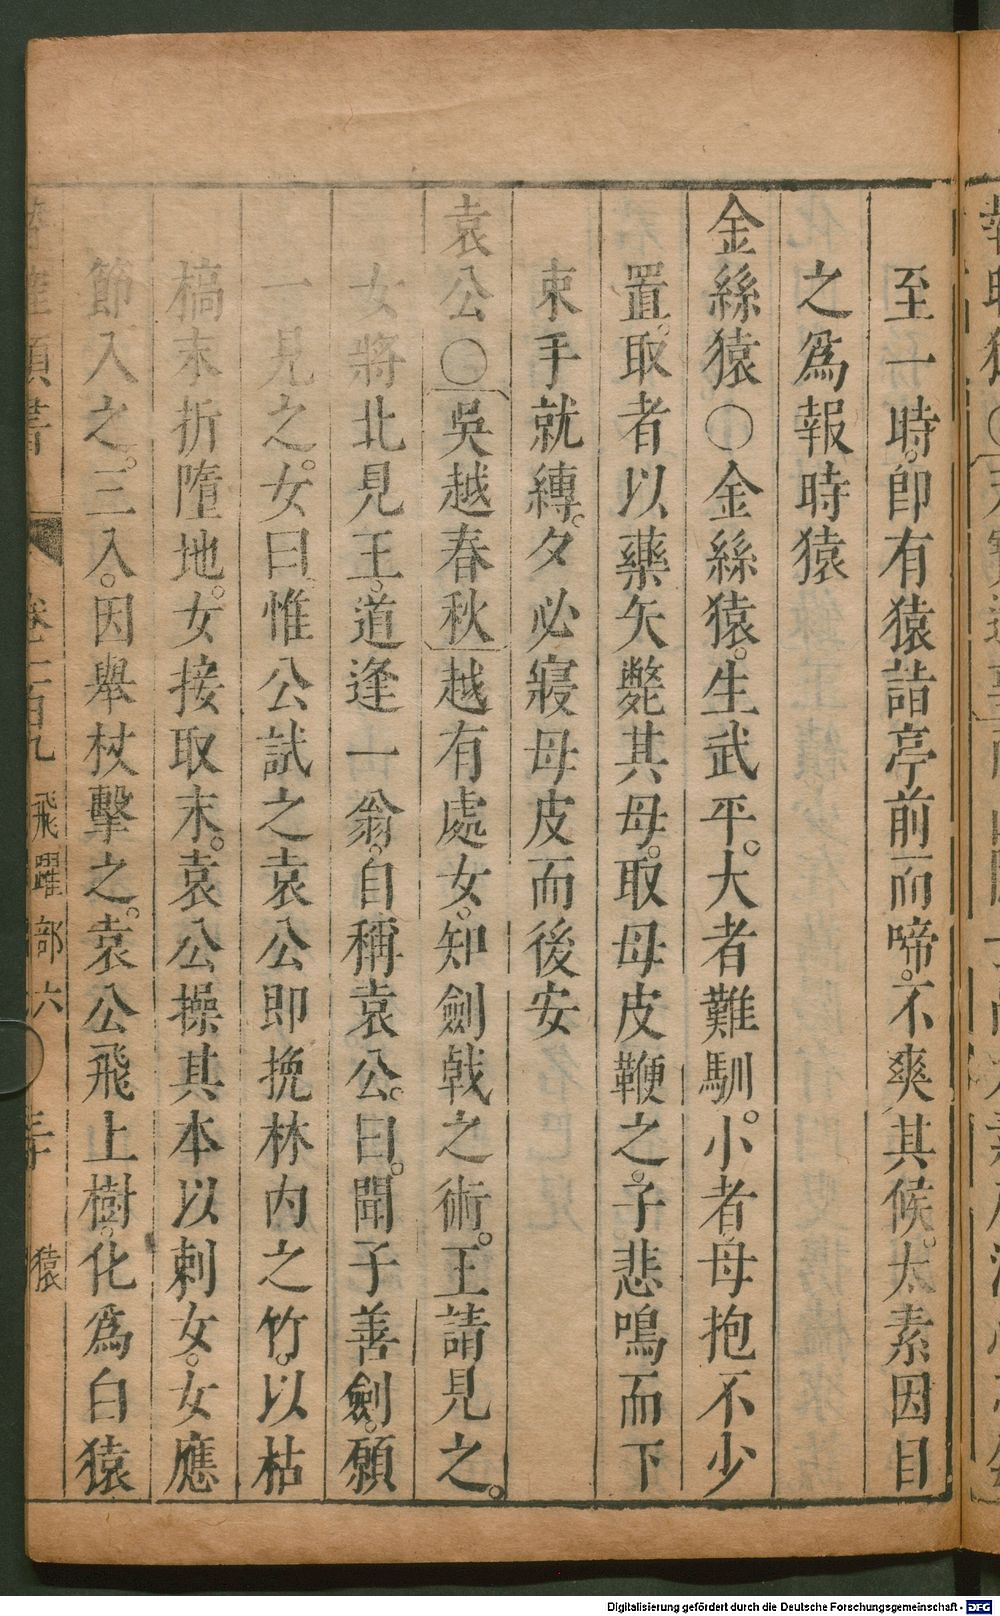 至一時。卽有猿詣亭前而啼。不爽其候。太素因目
之爲報時猿
金絲猿○金絲猿。生武平。大者難馴。小者母抱不少
置。取者以藥矢斃其母。取母皮鞭之。子悲鳴而下
束手就縛。夕必寢母皮而後安
袁公○吳越春秋越有處女。知劍戟之術。王請見之。
女將北見王。道逢一翁。自稱袁公。曰。聞子善劍。願
一見之。女曰惟公試之袁公即挽林内之竹。以枯
槁末折墮地。女接取末。袁公操其本以刺女。女應
節入之。三入。因舉杖擊之。袁公飛上樹。化爲白猿
類書 卷一百九 飛躍部六 猿
Digitalisierung gefördert durch die Deutsche Forschungsgemeinschaft - DFG